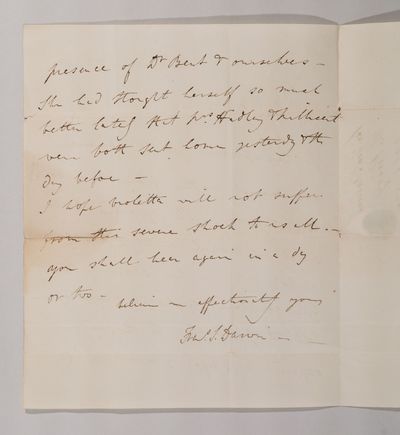 presence of Dr Bent & ourselves –
She had thought herself so much
better lately that Mrs Hadley & Millicent
were both sent home yesterday & the
day before –
I hope Violetta will not suffer
from this severe shock to us all. –
you shall hear again in a day
or too –
believe m affectionately yours
Fras. S. Darwin –